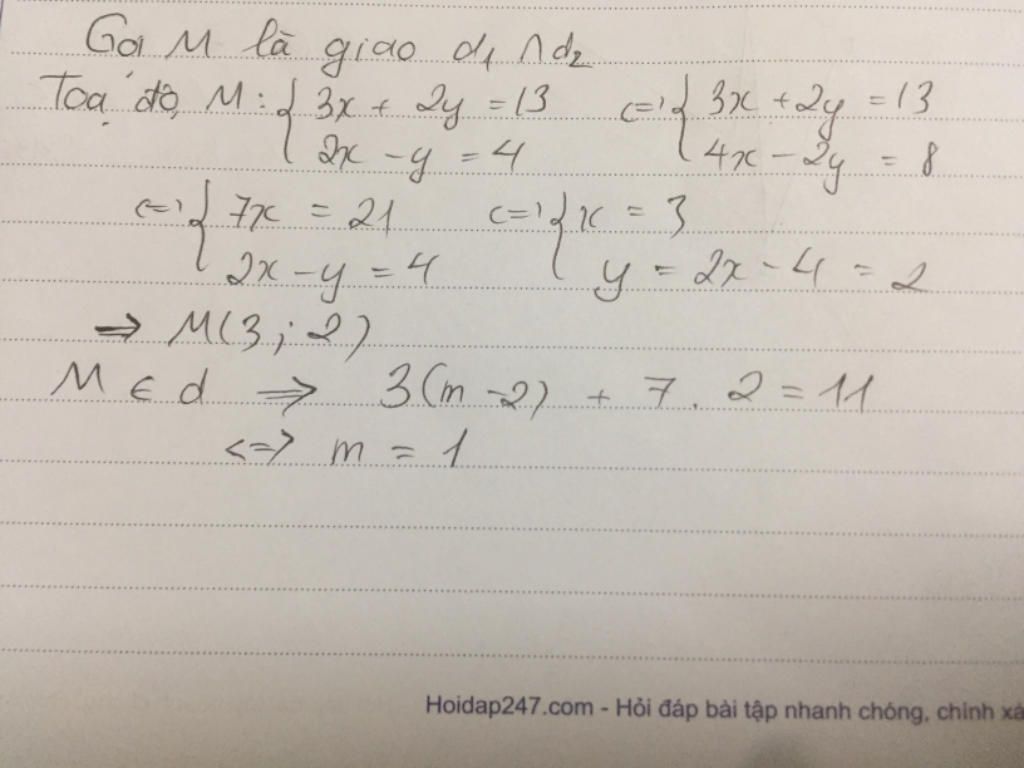 Gọi M là giao d₁ ∩ d₂
Toạ độ M: { 3x + 2y = 13 <=> { 3x + 2y = 13
2x - y = 4 4x - 2y = 8
<=> { 7x = 21 <=> { x = 3
2x - y = 4 y = 2x - 4 = 2
=> M(3; 2)
M ∈ d => 3(m - 2) + 7.2 = 11
<=> m = 1
Hoidap247.com - Hỏi đáp bài tập nhanh chóng, chính xá